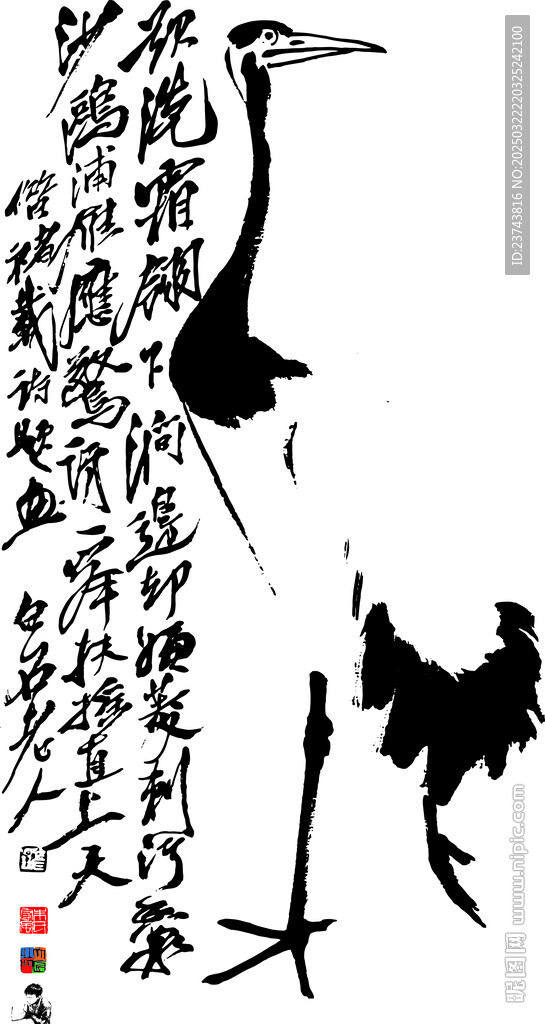 欲洗霜翎下澗邊却嫌菱刺污香泉
沙鷗浦雁應驚訝一舉扶搖直上天
借褚載詩題画 白石老人
ID:23743816 NO:20250322220325242100
昵图网 www.nipic.com